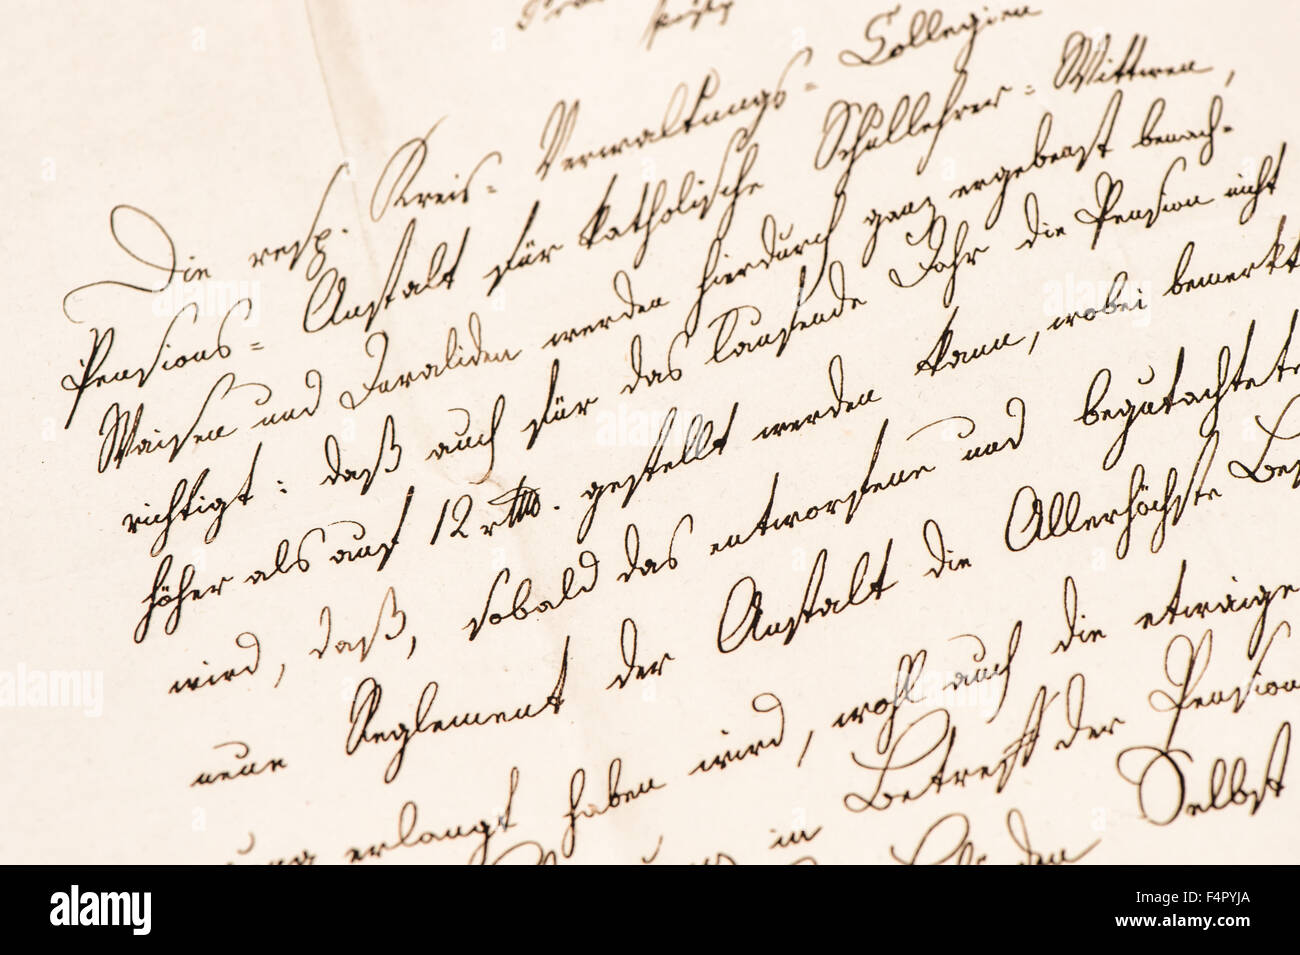 Die resp. Kreis= Verwaltungs= Collegien
Pensions= Anstalt für katholische Schullehrer= Wittwen,
Waisen und Invaliden werden hierdurch ganz ergebenst benach-
richtigt: daß auch für das laufende Jahr die Pension nicht
höher als auf 12 rthl. gestellt werden kann, wobei bemerkt
wird, daß, sobald das entworfene und begutachtete
neue Reglement der Anstalt die Allerhöchste
erlangt haben wird, wohl auch die etwaige
in Betreff der Pension
Selbst
alamy
alamy
Image ID: F4PYJA
www.alamy.com